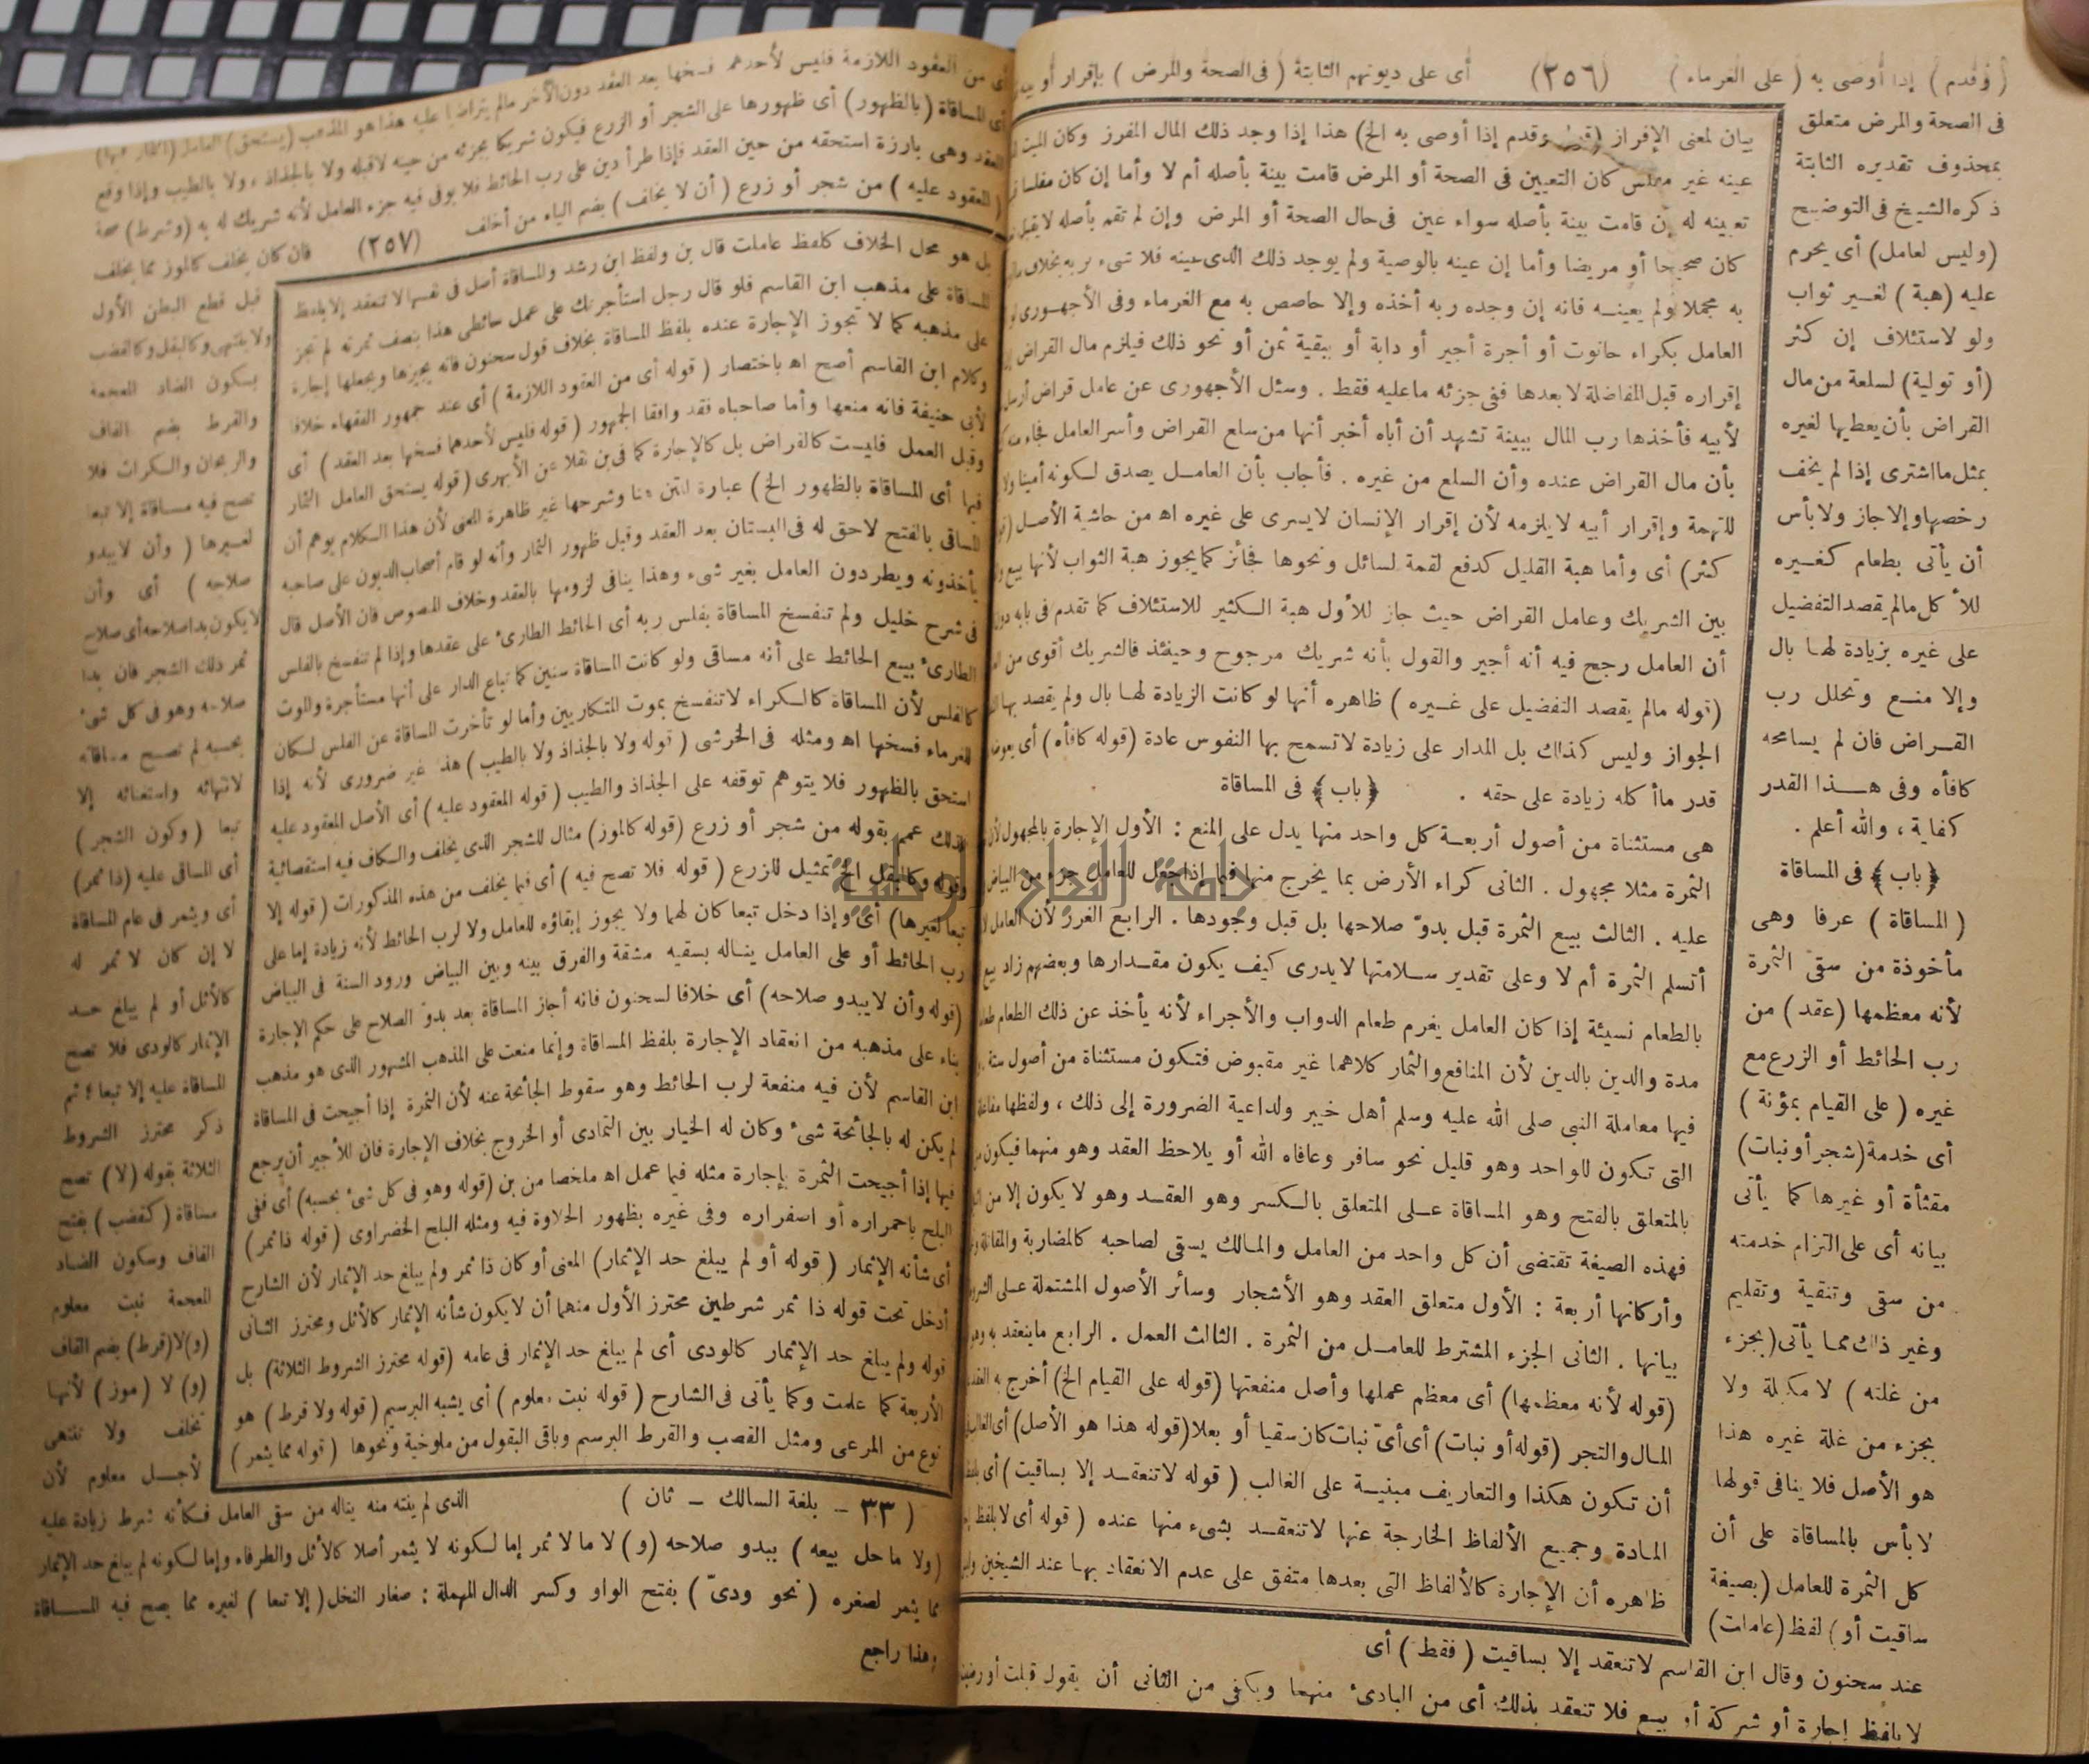 ( وقدم ) إذا أوصى به ( على الغرماء ) (٢٥٦) أى على ديونهم الثابتة ( فى الصحة والمرض ) بإقرار أو
فى الصحة والمرض متعلق
بمحذوف تقديره الثابتة
ذكره الشيخ فى التوضيح
(وليس لعامل) أى يحرم
عليه (هبة ) لغير ثواب
ولو لاستئلاف إن كثر
(أو تولية) لسلعة من مال
القراض بأن يعطيها لغيره
بمثل ما اشترى إذا لم يخف
رخصها وإلا جاز ولا بأس
أن يأتى بطعام كغيره
للأ كل مالم يقصد التفضيل
على غيره بزيادة لها بال
وإلا منع وتحلل رب
القراض فان لم يسامحه
كافأه وفى هذا القدر
كفاية ، والله أعلم .
﴿ باب ﴾ فى المساقاة
( المساقاة ) عرفا وهى
مأخوذة من سقى الثمرة
لأنه معظمها (عقد) من
رب الحائط أو الزرع مع
غيره ( على القيام بمؤنة )
أى خدمة (شجر أو نبات)
مقثأة أو غيرها كما يأتى
بيانه أى على التزام خدمته
من سقى وتنقية وتقليم
وغير ذلك مما يأتى (بجزء
من غلته ) لا مكيلة ولا
بجزء من غلة غيره هذا
هو الأصل فلا ينافى قولها
لا بأس بالمساقاة على أن
كل الثمرة للعامل (بصيغة
ساقيت أو) لفظ (عاملت)
عند سحنون وقال ابن القاسم لا تنعقد إلا بساقيت ( فقط ) أى
لا بلفظ إجارة أو شركة أو بيع فلا تنعقد بذلك أى من البادئ منهما ويكفى من الثانى أن يقول قبلت أو رضيت
بيان لمعنى الإفراز وقدم إذا أوصى به الخ) هذا إذا وجد ذلك المال المفرز وكان الميت
عينه غير مفلس كان التعيين فى الصحة أو المرض قامت بينة بأصله أم لا وأما إن كان مفلسا
تعيينه له إن قامت بينة بأصله سواء عين فى حال الصحة أو المرض وإن لم تقم بأصله لا يقبل
كان صحيحا أو مريضا وأما إن عينه بالوصية ولم يوجد ذلك الذى عينه فلا شىء لربه بخلاف
به مجملا ولم يعينه فانه إن وجده ربه أخذه وإلا حاصص به مع الغرماء وفى الأجهورى
العامل بكراء حانوت أو أجرة أجير أو دابة أو ببقية ثمن أو نحو ذلك فيلزم مال القراض
إقراره قبل المفاضلة لا بعدها ففى جزئه ما عليه فقط . وسئل الأجهورى عن عامل قراض أرسل
لأبيه فأخذها رب المال ببينة تشهد أن أباه أخبر أنها من سلع القراض وأسر العامل فجاء
بأن مال القراض عنده وأن السلع من غيره . فأجاب بأن العامل يصدق لكونه أمينا ولا
للتهمة وإقرار أبيه لا يلزمه لأن إقرار الإنسان لا يسرى على غيره اه من حاشية الأصل
كثر) أى وأما هبة القليل كدفع لقمة لسائل ونحوها فجائز كما يجوز هبة الثواب لأنها بيع
بين الشريك وعامل القراض حيث جاز للأول هبة الكثير للاستئلاف كما تقدم فى بابه دون
أن العامل رجح فيه أنه أجير والقول بأنه شريك مرجوح وحينئذ فالشريك أقوى من
(قوله مالم يقصد التفضيل على غيره ) ظاهره أنها لو كانت الزيادة لها بال ولم يقصد بها
الجواز وليس كذلك بل المدار على زيادة لا تسمح بها النفوس عادة (قوله كافأه ) أى يعوضه
قدر ما أ كله زيادة على حقه . ﴿ باب ﴾ فى المساقاة
هى مستثناة من أصول أربعة كل واحد منها يدل على المنع : الأول الإجارة بالمجهول
الثمرة مثلا مجهول . الثانى كراء الأرض بما يخرج منها فيما إذا جعل للعامل جزء من البياض
عليه . الثالث بيع الثمرة قبل بدوّ صلاحها بل قبل وجودها . الرابع الغرر لأن العامل
أتسلم الثمرة أم لا وعلى تقدير سلامتها لا يدرى كيف يكون مقدارها وبعضهم زاد بيع
بالطعام نسيئة إذا كان العامل يغرم طعام الدواب والأجراء لأنه يأخذ عن ذلك الطعام
مدة والدين بالدين لأن المنافع والثمار كلاهما غير مقبوض فتكون مستثناة من أصول ستة
فيها معاملة النبى صلى الله عليه وسلم أهل خيبر ولداعية الضرورة إلى ذلك ، ولفظها مفاعلة
التى تكون للواحد وهو قليل نحو سافر وعافاه الله أو يلاحظ العقد وهو منهما فيكون
بالمتعلق بالفتح وهو المساقاة على المتعلق بالكسر وهو العقد وهو لا يكون إلا من
فهذه الصيغة تقتضى أن كل واحد من العامل والمالك يسقى لصاحبه كالمضاربة والمقاتلة
وأركانها أربعة : الأول متعلق العقد وهو الأشجار وسائر الأصول المشتملة على الشروط
بيانها . الثانى الجزء المشترط للعامل من الثمرة . الثالث العمل . الرابع ما ينعقد به وهو
(قوله لأنه معظمها) أى معظم عملها وأصل منفعتها (قوله على القيام الخ) أخرج به العقد
المال والتجر (قوله أو نبات) أى أىّ نبات كان سقيا أو بعلا (قوله هذا هو الأصل) أى الغالب
أن تكون هكذا والتعاريف مبنية على الغالب ( قوله لا تنعقد إلا بساقيت ) أى
المادة وجميع الألفاظ الخارجة عنها لا تنعقد بشىء منها عنده ( قوله أى لا بلفظ
ظاهره أن الإجارة كالألفاظ التى بعدها متفق على عدم الانعقاد بها عند الشيخين
أى من العقود اللازمة فليس لأحدهم فسخها بعد العقد دون الآخر مالم يتراضيا عليه هذا هو المذهب (يستحق) العامل (الثمار فيها)
أى المساقاة (بالظهور) أى ظهورها على الشجر أو الزرع فيكون شريكا بجزئه من حينه لا قبله ولا بالجذاذ ، ولا بالطيب وإذا وقع
العقد وهى بارزة استحقه من حين العقد فإذا طرأ دين على رب الحائط فلا يوفى فيه جزء العامل لأنه شريك له به (وشرط) صحة
( المعقود عليه ) من شجر أو زرع ( أن لا يخلف ) بضم الياء من أخلف (٢٥٧) فان كان يخلف كالموز مما يخلف
قبل قطع البطن الأول
ولا ينتهى وكالبقل وكالقضب
بسكون الضاد المعجمة
والقرط بضم القاف
والريحان والكراث فلا
تصح فيه مساقاة إلا تبعا
لغيرها ( وأن لا يبدو
صلاحه ) أى وأن
لا يكون بدا صلاحه أى صلاح
ثمر ذلك الشجر فان بدا
صلاحه وهو فى كل شىء
بحسبه لم تصح مساقاته
لانتهائه واستغنائه إلا
تبعا ( وكون الشجر )
أى المساقى عليه (ذا ثمر)
أى ويثمر فى عام المساقاة
لا إن كان لا ثمر له
كالأثل أو لم يبلغ حد
الإثمار كالودى فلا تصح
المساقاة عليه إلا تبعا ؛ ثم
ذكر محترز الشروط
الثلاثة بقوله (لا) تصح
مساقاة ( كقضب ) بفتح
القاف وسكون الضاد
المعجمة نبت معلوم
(و) لا (قرط) بضم القاف
(و) لا (موز) لأنها
تخلف ولا تنتهى
لأجل معلوم لأن
بل هو محل الخلاف كلفظ عاملت قال بن ولفظ ابن رشد والمساقاة أصل فى نفسها لا تنعقد إلا بلفظ
المساقاة على مذهب ابن القاسم فلو قال رجل استأجرتك على عمل حائطى هذا بنصف ثمرته لم تجز
على مذهبه كما لا تجوز الإجارة عنده بلفظ المساقاة بخلاف قول سحنون فانه يجيزها ويجعلها إجارة
وكلام ابن القاسم أصح اه باختصار ( قوله أى من العقود اللازمة ) أى عند جمهور الفقهاء خلافا
لأبى حنيفة فانه منعها وأما صاحباه فقد وافقا الجمهور ( قوله فليس لأحدهما فسخها بعد العقد ) أى
وقبل العمل فليست كالقراض بل كالإجارة كما فى بن نقلا عن الأبهرى (قوله يستحق العامل الثمار
فيها أى المساقاة بالظهور الخ ) عبارة المتن هنا وشرحها غير ظاهرة المعنى لأن هذا الكلام يوهم أن
المساقى بالفتح لا حق له فى البستان بعد العقد وقبل ظهور الثمار وأنه لو قام أصحاب الديون على صاحبه
يأخذونه ويطردون العامل بغير شىء وهذا ينافى لزومها بالعقد وخلاف المنصوص فان الأصل قال
فى شرح خليل ولم تنفسخ المساقاة بفلس ربه أى الحائط الطارئ على عقدها وإذا لم تنفسخ بالفلس
الطارئ بيع الحائط على أنه مساقى ولو كانت المساقاة سنين كما تباع الدار على أنها مستأجرة والموت
كالفلس لأن المساقاة كالكراء لا تنفسخ بموت المتكاريين وأما لو تأخرت المساقاة عن الفلس لكان
للغرماء فسخها اه ومثله فى الخرشى ( قوله ولا بالجذاذ ولا بالطيب ) هذا غير ضرورى لأنه إذا
استحق بالظهور فلا يتوهم توقفه على الجذاذ والطيب ( قوله المعقود عليه ) أى الأصل المعقود عليه
ولذلك عمم بقوله من شجر أو زرع (قوله كالموز) مثال للشجر الذى يخلف والكاف فيه استقصائية
وقوله وكالبقل الخ تمثيل للزرع ( قوله فلا تصح فيه ) أى فيما يخلف من هذه المذكورات ( قوله إلا
تبعا لغيرها) أى وإذا دخل تبعا كان لهما ولا يجوز إبقاؤه للعامل ولا لرب الحائط لأنه زيادة إما على
رب الحائط أو على العامل يناله بسقيه مشقة والفرق بينه وبين البياض ورود السنة فى البياض
(قوله وأن لا يبدو صلاحه) أى خلافا لسحنون فانه أجاز المساقاة بعد بدوّ الصلاح على حكم الإجارة
بناء على مذهبه من انعقاد الإجارة بلفظ المساقاة وإنما منعت على المذهب المشهور الذى هو مذهب
ابن القاسم لأن فيه منفعة لرب الحائط وهو سقوط الجائحة عنه لأن الثمرة إذا أجيحت فى المساقاة
لم يكن له بالجائحة شىء وكان له الخيار بين التمادى أو الخروج بخلاف الإجارة فان للأجير أن يرجع
فيها إذا أجيحت الثمرة بإجارة مثله فيما عمل اه ملخصا من بن (قوله وهو فى كل شىء بحسبه) أى ففى
البلح باحمراره أو اصفراره وفى غيره بظهور الحلاوة فيه ومثله البلح الخضراوى ( قوله ذا ثمر )
أى شأنه الإثمار ( قوله أو لم يبلغ حد الإثمار) المعنى أو كان ذا ثمر ولم يبلغ حد الإثمار لأن الشارح
أدخل تحت قوله ذا ثمر شرطين محترز الأول منهما أن لا يكون شأنه الإثمار كالأثل ومحترز الثانى
قوله ولم يبلغ حد الإثمار كالودى أى لم يبلغ حد الإثمار فى عامه (قوله محترز الشروط الثلاثة) بل
الأربعة كما علمت وكما يأتى فى الشارح ( قوله نبت معلوم ) أى يشبه البرسيم ( قوله ولا قرط ) هو
نوع من المرعى ومثل القصب والقرط البرسم وباقى البقول من ملوخية ونحوها ( قوله مما يثمر )
( ٣٣ - بلغة السالك - ثان ) الذى لم يفته منه يناله من سقى العامل فكأنه شرط زيادة عليه
(ولا ما حل بيعه ) ببدو صلاحه (و) لا ما لا ثمر إما لكونه لا يثمر أصلا كالأثل والطرفاء وإما لكونه لم يبلغ حد الإثمار
مما يثمر لصغره ( نحو ودىّ ) بفتح الواو وكسر الدال المهملة : صغار النخل ( إلا تبعا ) لغيره مما يصح فيه المساقاة
وهذا راجع
جامعة النجاح الوطنية